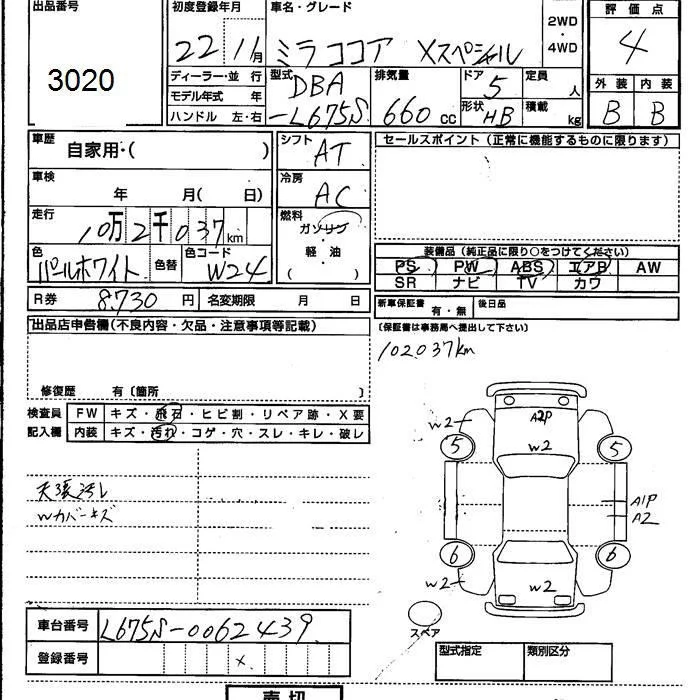 出品番号 初度登録年月 車名・グレード 評価点
3020 22 11月 ミラココア Xスペシャル 2WD・4WD 4
ディーラー・並行 型式 DBA 排気量 ドア 5 定員 人 外装 内装
モデル年式 年 -L675S 660 cc 形状 HB 積載 kg B B
ハンドル 左・右
車歴 自家用・( ) シフト AT セールスポイント (正常に機能するものに限ります)
車検 年 月( 日) 冷房 AC
走行 10万2千037km 燃料 ガソリン・軽・油( )
色 パールホワイト 色替 色コード W24
装備品 (純正品に限り○をつけてください)
PS PW ABS エアB AW
SR ナビ TV カワ
R券 8730 円 名変期限 月 日 新車保証書 有・無 後日品
出品店申告欄(不良内容・欠品・注意事項等記載) (保証書は事務局へ提出して下さい)
102037km
修復歴 有〔箇所 〕
検査員 FW キズ・飛石・ヒビ割・リペア跡・X要
記入欄 内装 キズ・汚れ・コゲ・穴・スレ・キレ・破レ
A2P
W2 W2
5 5
天張汚レ
Wカバーキズ
A1P
A2
6 6
W2 W2
スペア
車台番号 L675S-0062439
登録番号 x
型式指定 類別区分
売切